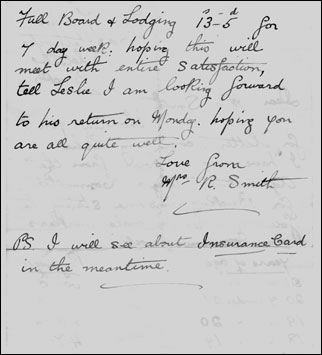 Full Board & Lodging 13s-5d for
7 day week. hoping this will
meet with entire satisfaction,
tell Leslie I am looking forward
to his return on Monday. hoping you
are all quite well.
Love from
Mrs R. Smith
PS I will see about Insurance Card
in the meantime.